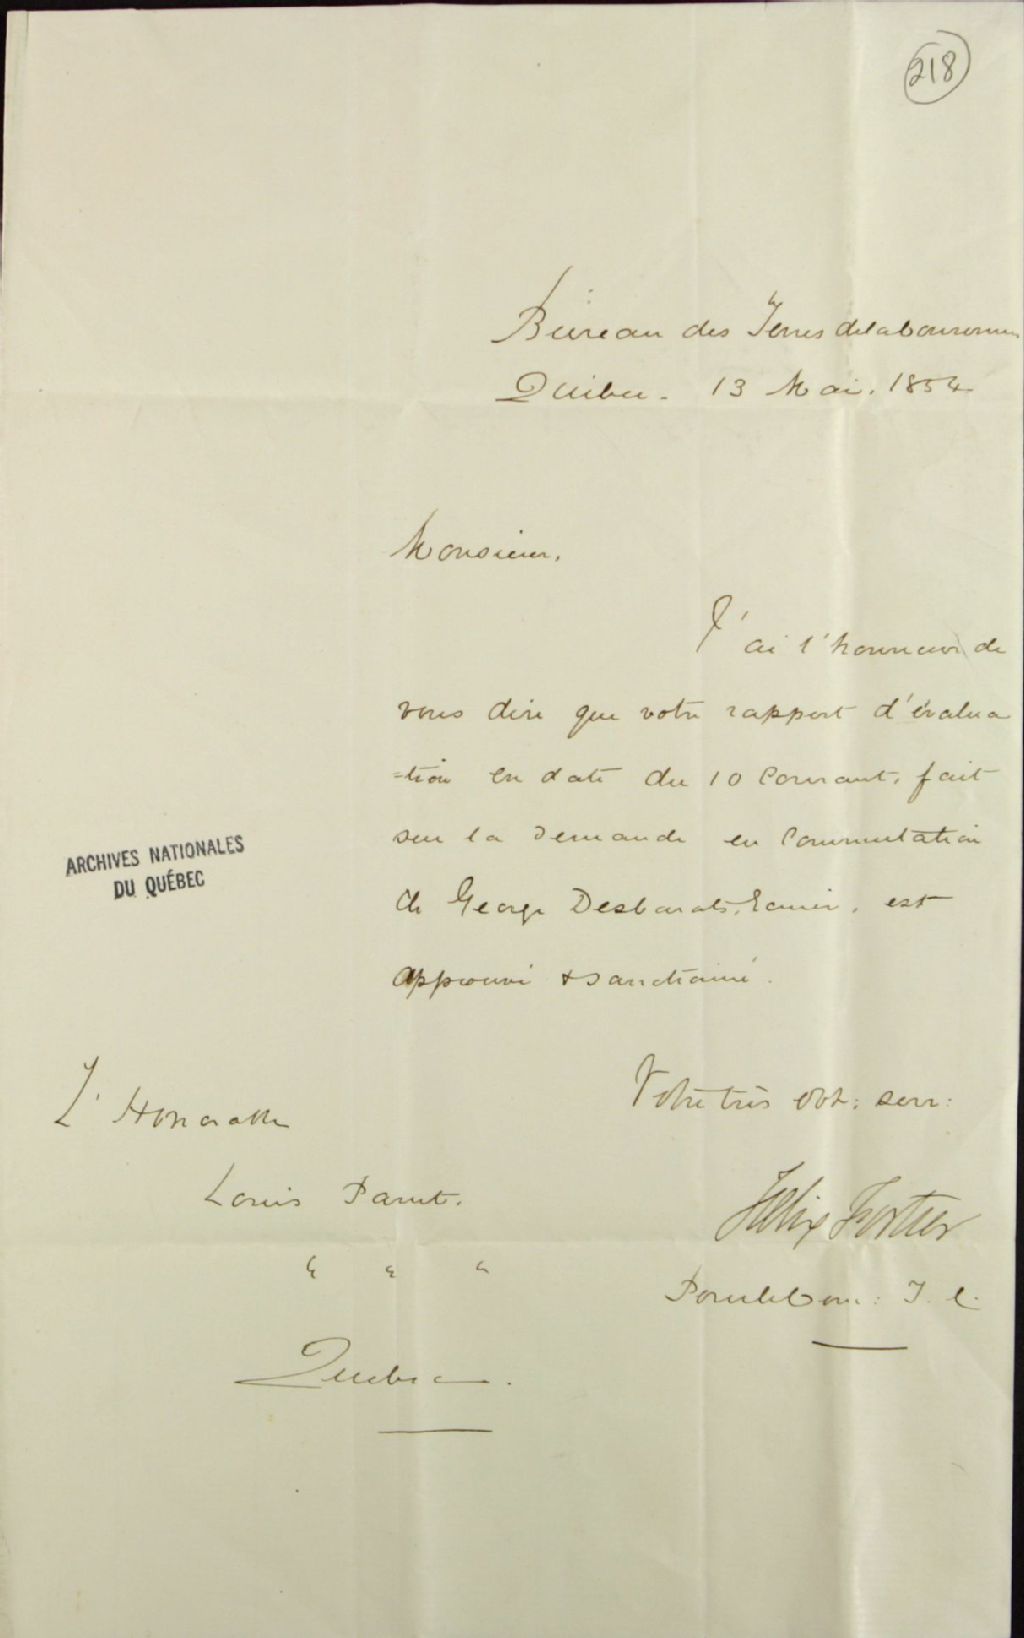 218
Bureau des Terres de la Couronne
Québec. 13 Mai. 1854
Monsieur,
J'ai l'honneur de
vous dire que votre rapport d'évalua
=tion en date du 10 Courant, fait
sur la demande en Commutation
de George Desbarats, Ecuier, est
approuvé & sanctionné.
ARCHIVES NATIONALES
DU QUÉBEC
Votre très obt: serv:
L'Honorable
Louis Panet.
" " "
Québec.
Felix Fortier
Pour le Com: T. C.